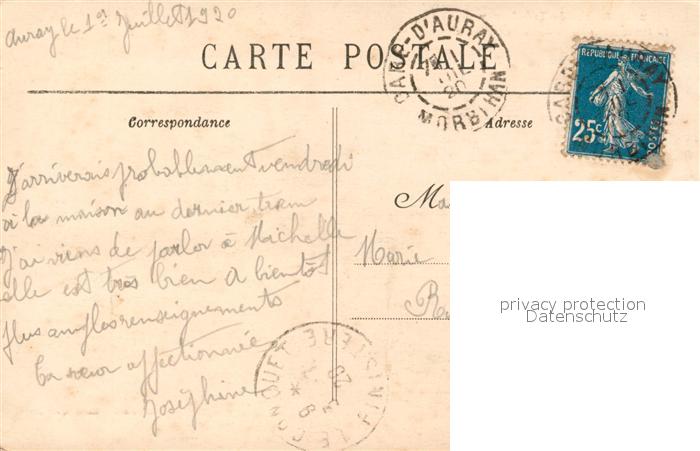 Auray le 1er Juillet 1920
CARTE POSTALE
GARE-D'AURAY
20
MORBIHAN
REPUBLIQUE FRANÇAISE
25c
POSTES
Correspondance
Adresse
J'arriverais probablement vendredi
à la maison au dernier tram
J'ai viens de parler à Michelle
elle est très bien A bientôt
plus amples renseignements
Ta sœur affectionnée
Joséphine
M
Marie
R
LE CONQUET
FINISTERE
20
privacy protection
Datenschutz